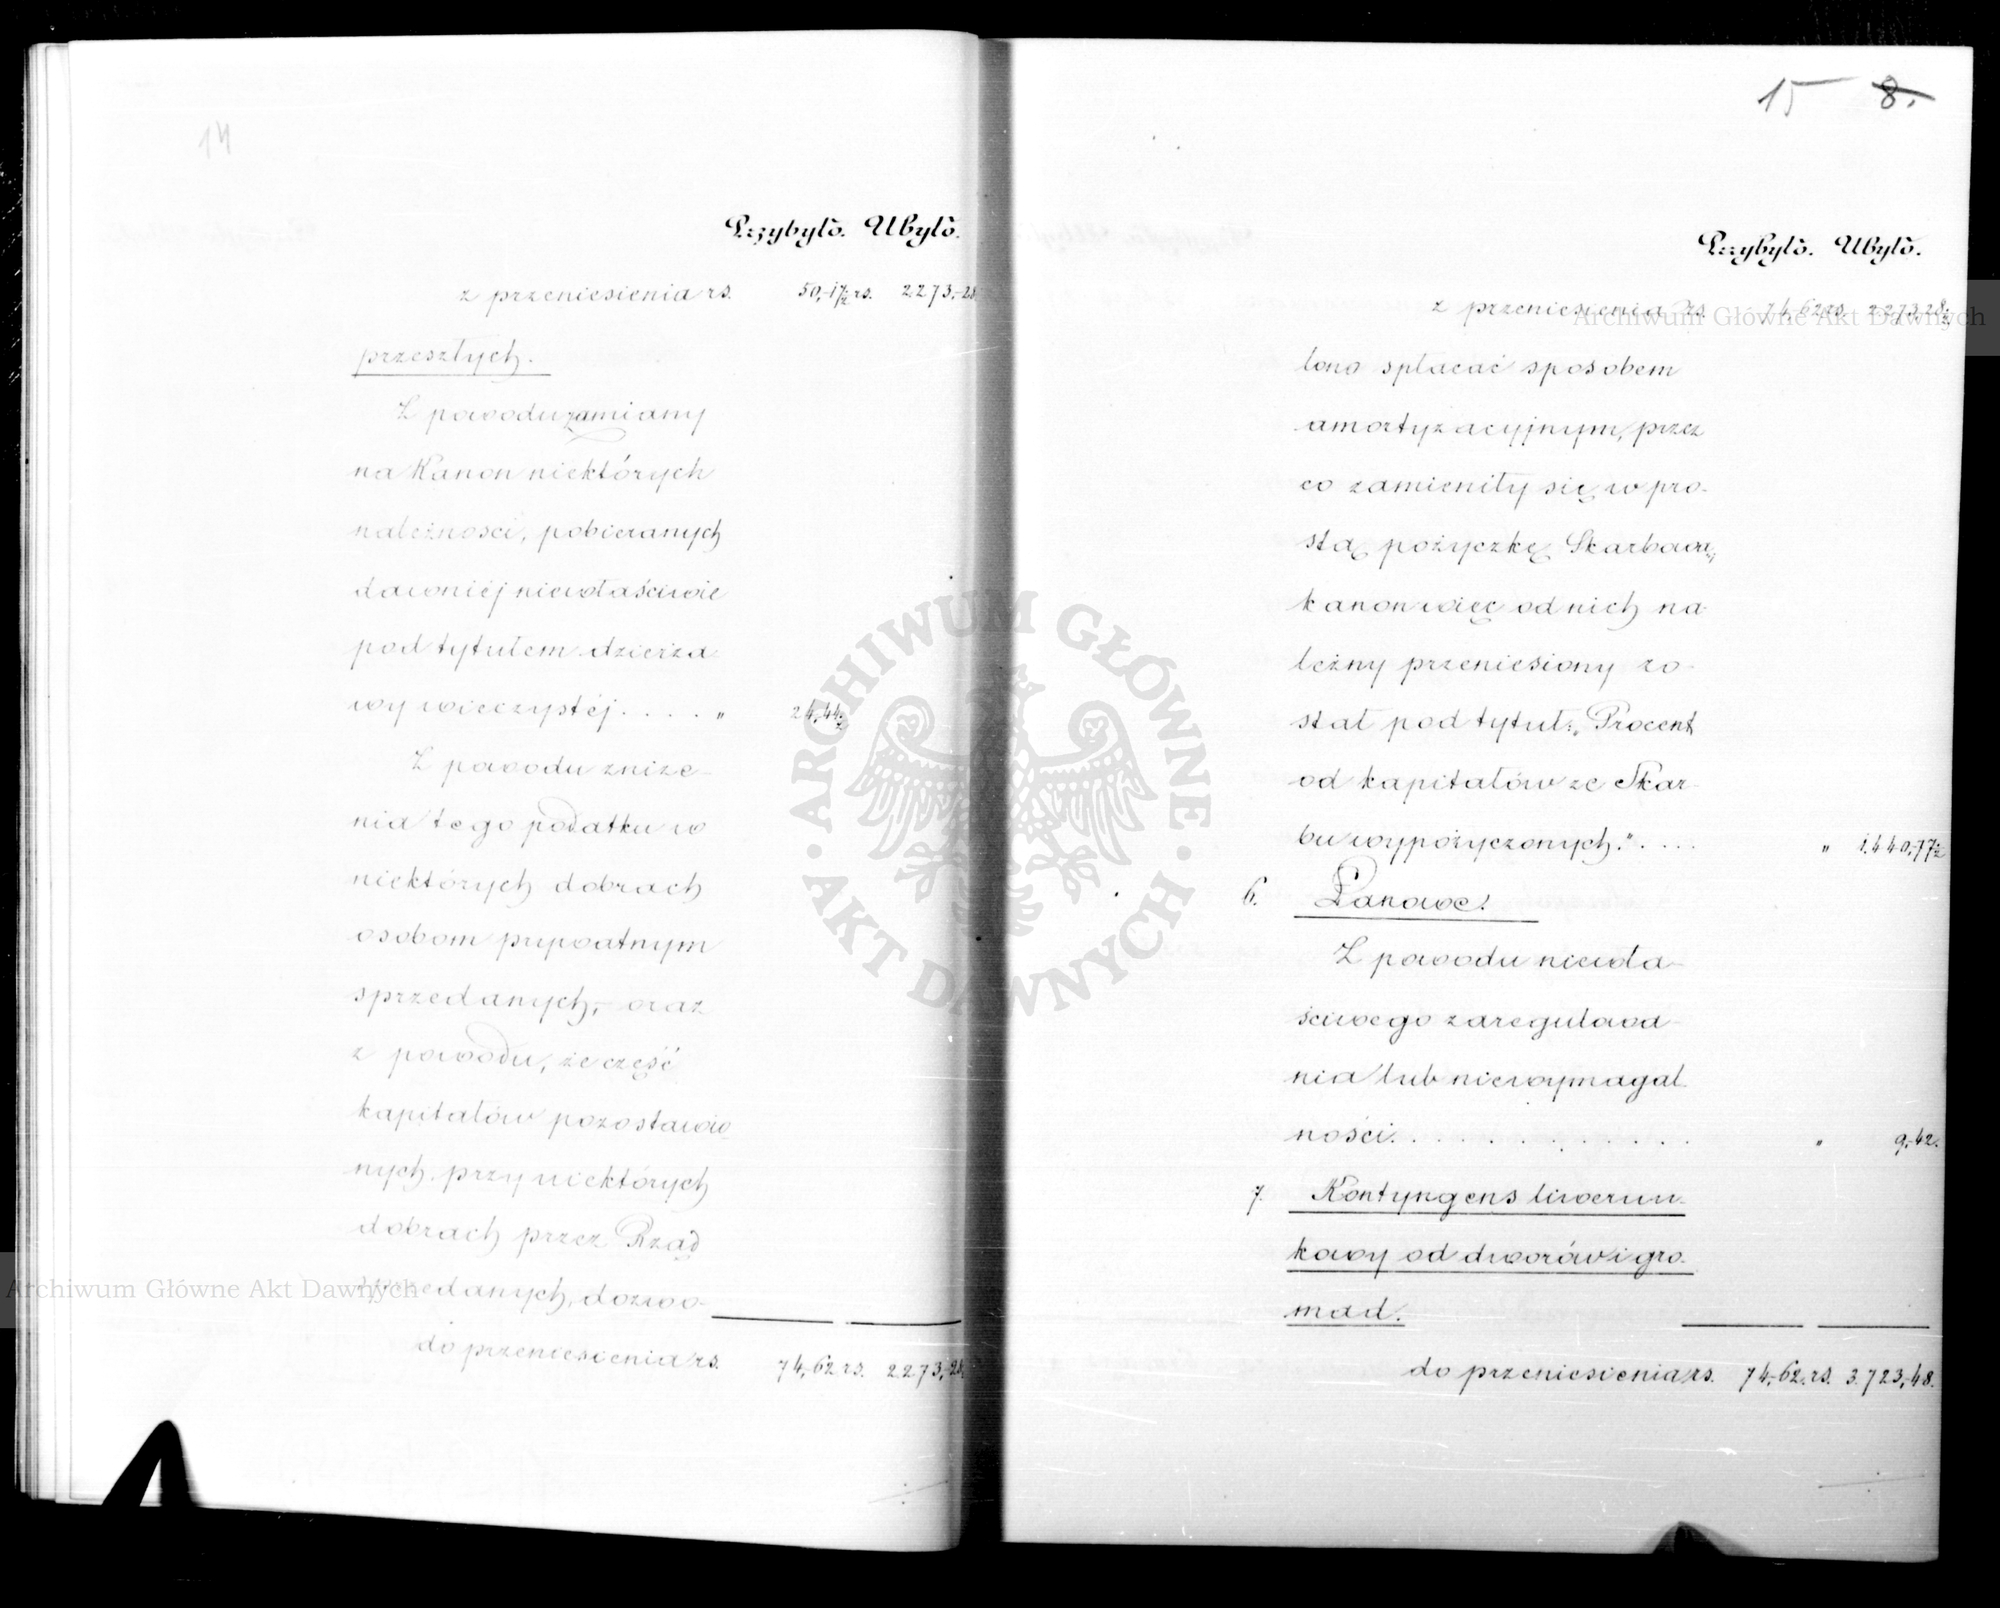 14
Przybyło. Ubyło.
z przeniesienia rs. 50,-17½ rs. 2273,-28
przeszłych.
Z powodu zamiany
na Kanon niektórych
należności, pobieranych
dawniéj niewłaściwie
pod tytułem dzierża-
wy wieczystéj . . . . „ 24,44½
Z powodu zniże-
nia tego podatku w
niektórych dobrach
osobom prywatnym
sprzedanych, oraz
z powodu, że część
kapitałów pozostawio-
nych, przy niektórych
dobrach przez Rząd
sprzedanych, dozwo-
do przeniesienia rs. 74,-62 rs. 2273,-28
15 8.
Przybyło. Ubyło.
z przeniesienia rs. 74,-62 rs. 2273,28½
lono spłacać sposobem
amortyzacyjnym, przez
co zamieniły się w pro-
stą pożyczkę Skarbową,
kanon więc od nich na-
leżny przeniesiony zo-
stał pod tytuł: „Procent
od kapitałów ze Skar-
bu wypożyczonych." . . . . „ 1.440,-77½
6. Łanowe.
Z powodu niewła-
ściwego zaregulowa-
nia lub niewymagal-
ności. . . . . . . . . . . „ 9,-42.
7. Kontyngens liwerun-
kowy od dworów i gro-
mad.
do przeniesienia rs. 74,-62. rs. 3.723,-48.
ARCHIWUM GŁÓWNE
· AKT DAWNYCH ·
Archiwum Główne Akt Dawnych
Archiwum Główne Akt Dawnych